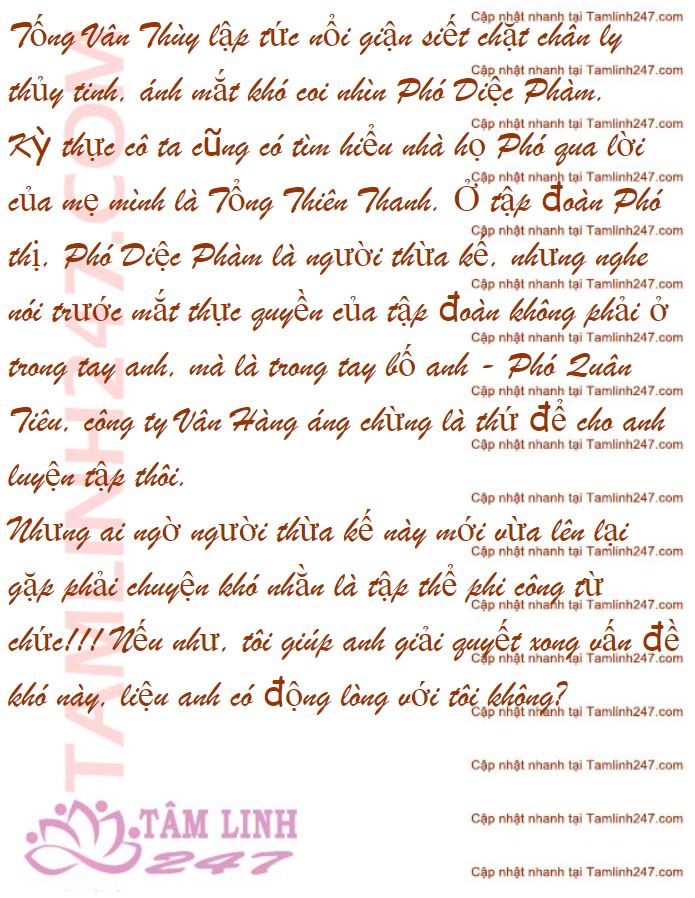 Cập nhật nhanh tại Tamlinh247.com
Tống Vân Thùy lập tức nổi giận siết chặt chân ly
Cập nhật nhanh tại Tamlinh247.com
thủy tinh, ánh mắt khó coi nhìn Phó Diệc Phàm.
Cập nhật nhanh tại Tamlinh247.com
Kỳ thực cô ta cũng có tìm hiểu nhà họ Phó qua lời
Cập nhật nhanh tại Tamlinh247.com
của mẹ mình là Tổng Thiên Thanh. Ở tập đoàn Phó
Cập nhật nhanh tại Tamlinh247.com
thị, Phó Diệc Phàm là người thừa kế, nhưng nghe
Cập nhật nhanh tại Tamlinh247.com
nói trước mắt thực quyền của tập đoàn không phải ở
Cập nhật nhanh tại Tamlinh247.com
trong tay anh, mà là trong tay bố anh - Phó Quân
Cập nhật nhanh tại Tamlinh247.com
Tiêu, công ty Vân Hàng áng chừng là thứ để cho anh
Cập nhật nhanh tại Tamlinh247.com
luyện tập thôi.
Cập nhật nhanh tại Tamlinh247.com
Nhưng ai ngờ người thừa kế này mới vừa lên lại
Cập nhật nhanh tại Tamlinh247.com
gặp phải chuyện khó nhằn là tập thể phi công từ
Cập nhật nhanh tại Tamlinh247.com
chức!!! Nếu như, tôi giúp anh giải quyết xong vấn đề
Cập nhật nhanh tại Tamlinh247.com
khó này, liệu anh có động lòng với tôi không?
Cập nhật nhanh tại Tamlinh247.com
Cập nhật nhanh tại Tamlinh247.com
Cập nhật nhanh tại Tamlinh247.com
Cập nhật nhanh tại Tamlinh247.com
TAMLINH247.COM
TÂM LINH
247